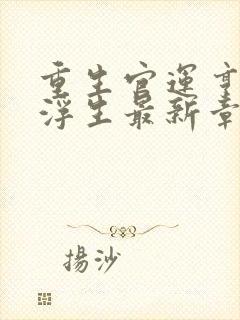 重生官運
浮生最新章
揚沙